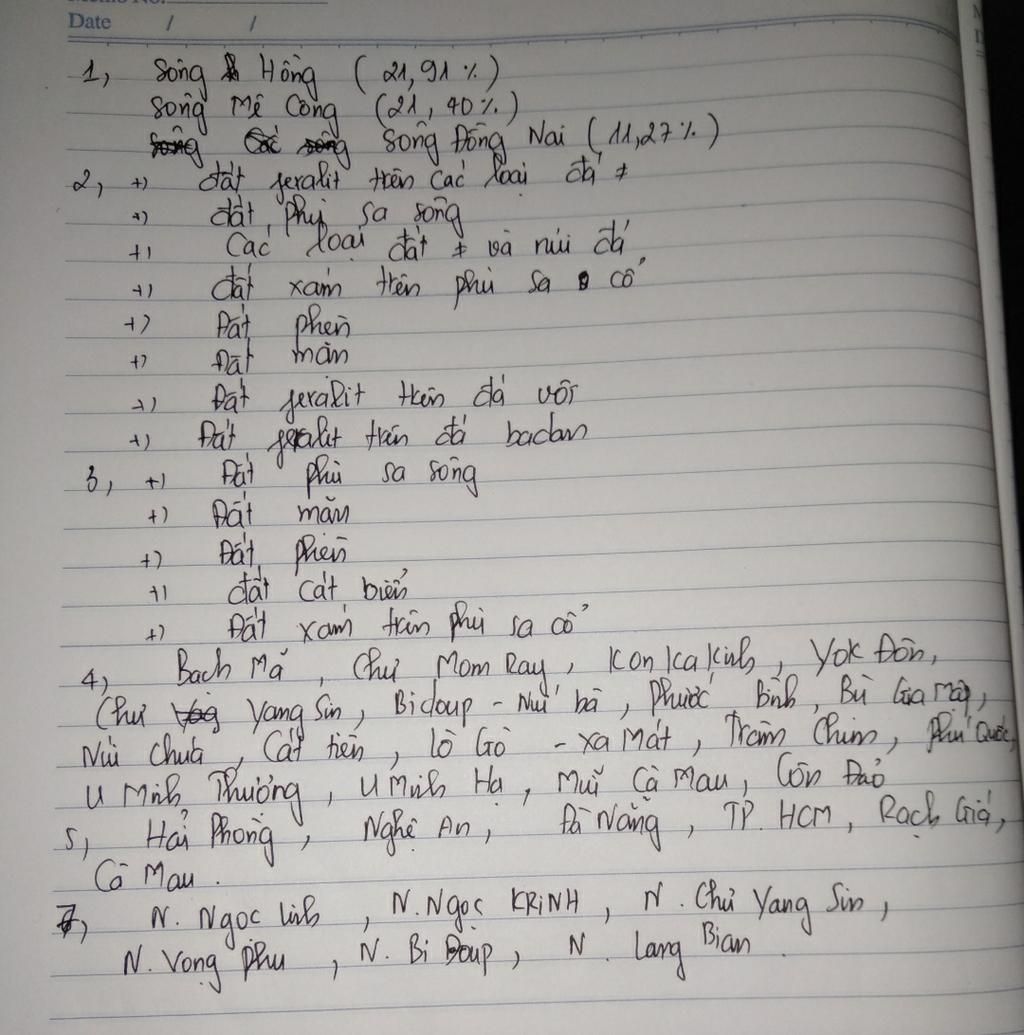 Memo No.
Date / /
1, Sông Hồng (21,91%)
Sông Mê Công (21,40%)
Sông Đồng Nai (11,27%)
2, +) đất feralit trên các loại đá ≠
+) đất phù sa sông
+) Các loại đất ≠ và núi đá
+) đất xám trên phù sa cổ
+) Đất phèn
+) Đất mặn
+) Đất feralit trên đá vôi
+) Đất feralit trên đá badan
3, +) Đất phù sa sông
+) Đất mặn
+) Đất phèn
+) đất cát biển
+) Đất xám trên phù sa cổ
4, Bạch Mã, Chư Mom Ray, Kon Ka Kinh, Yok Đôn,
Chư Yang Sin, Bidoup - Núi bà, Phước Bình, Bù Gia Mập,
Núi Chúa, Cát tiên, Lò Gò - Xa Mát, Tràm Chim, Phú Quốc,
U Minh Thượng, U Minh Hạ, Mũi Cà Mau, Côn Đảo
5, Hải Phòng, Nghệ An, Đà Nẵng, TP. HCM, Rạch Giá,
Cà Mau.
7, N. Ngọc Linh, N. Ngọc KRINH, N. Chư Yang Sin,
N. Vọng Phu, N. Bi Đoup, N. Lang Bian.